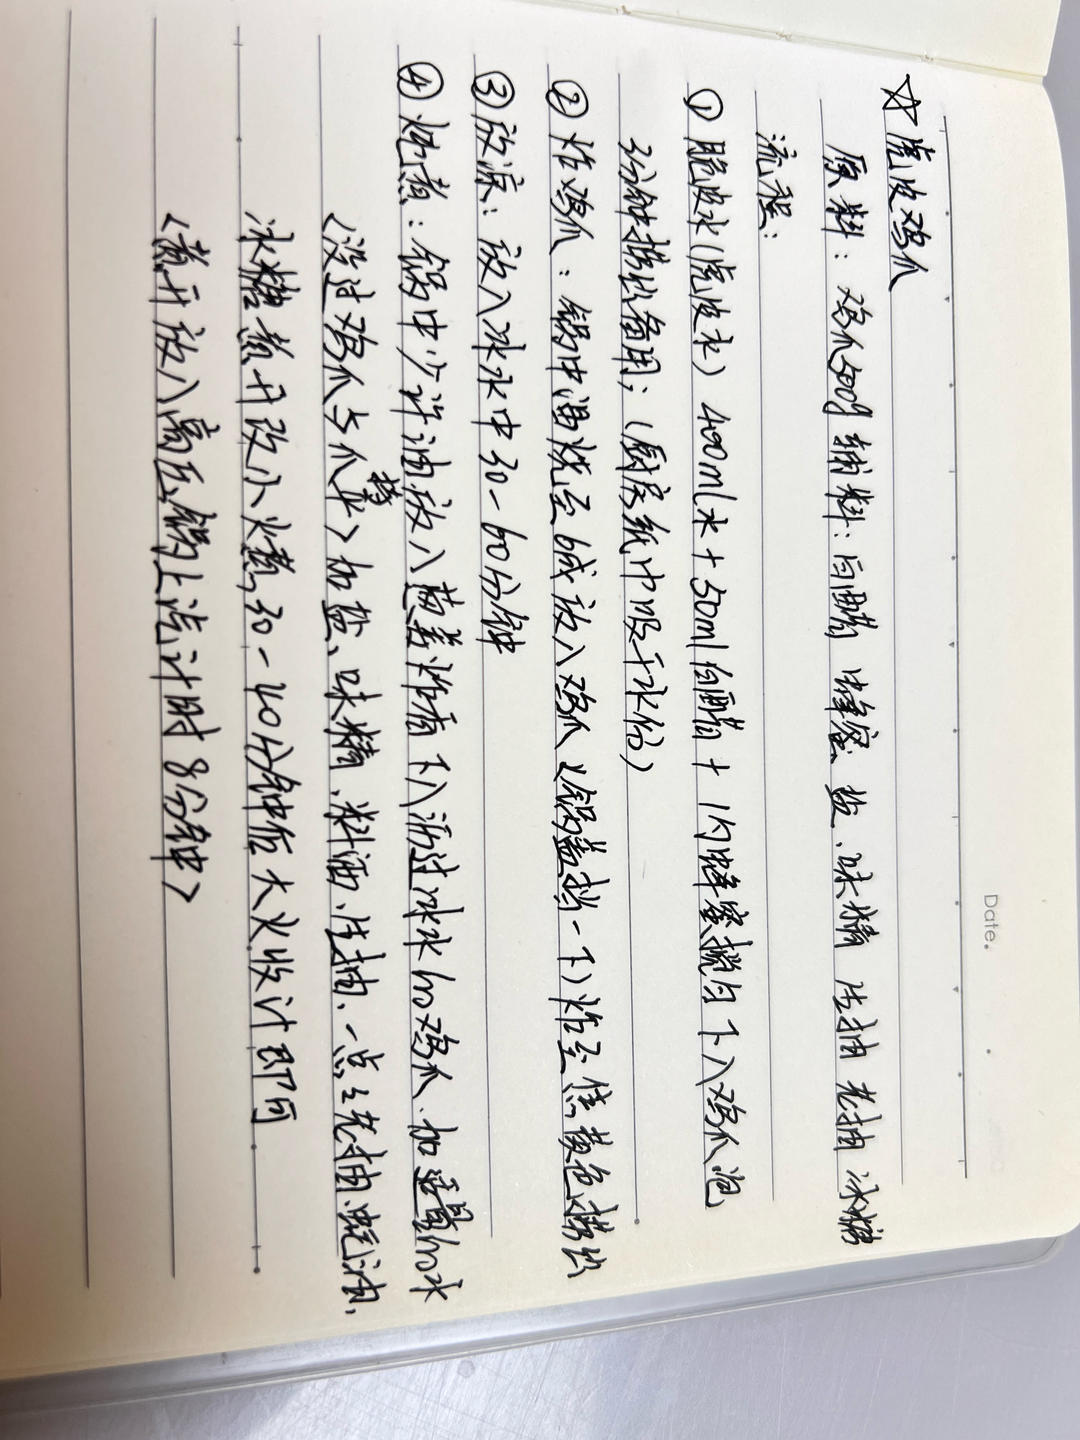 Date.
☆虎皮鸡爪
原料：鸡爪500g 辅料：白醋 蜂蜜 盐、味精 生抽 老抽 冰糖
流程：
① 脆皮水(虎皮水) 400ml水+50ml白醋+1勺蜂蜜搅匀下入鸡爪泡
3分钟捞出备用；(厨房纸巾吸干水份)
② 炸鸡爪：锅中油烧至6成放入鸡爪(锅盖挡一下)炸至焦黄色捞出
③ 放凉：放入冰水中30-60分钟
④ 炖煮：锅中少许油放入葱姜炸香下入沥过冰水的鸡爪、加适量的水
(没过鸡爪与爪平)加盐、味精、料酒、生抽、一点点老抽、蚝油、
冰糖煮开改小火煮30-40分钟后大火收汁即可
(煮开放入高压锅上汽计时8分钟)